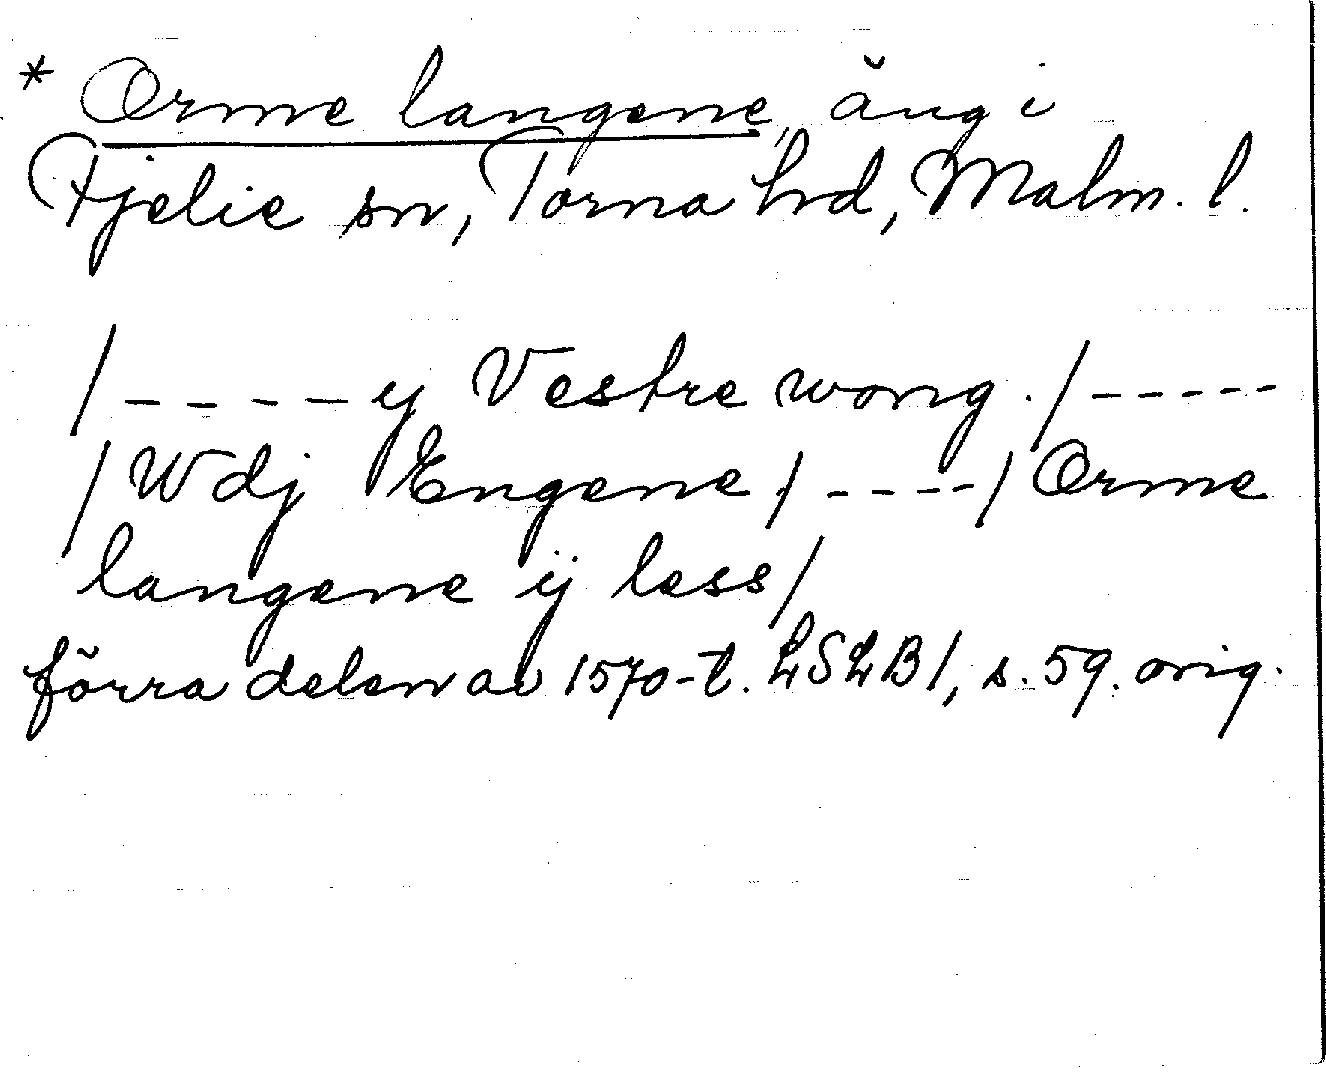 * Orme langene, äng i
Fjelie sn, Torna hd, Malm. l.
/----y Vestre wong./-----
/Wdj Engene/----/Orme
langene ij less/
förra delen av 1570-t. LSLB1, s. 59. orig.